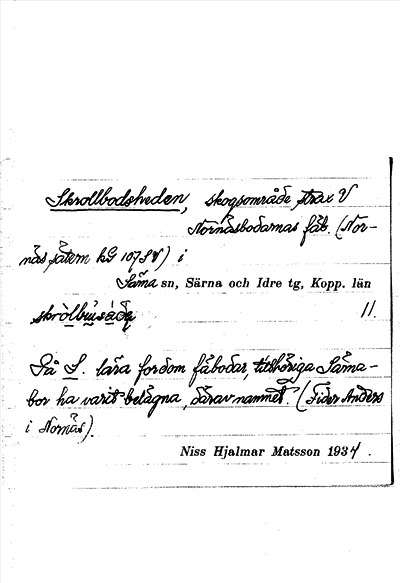 Skrollbodsheden, skogsområde strax V
Nornäsbodarnas fäb. (Nor-
näs
i
Särna sn, Särna och Idre tg, Kopp. län
11.
På S. lära fordom fäbodar, tillhöriga Särna-
bor ha varit belägna, därav namnet. (Tider Anders
i Nornäs).
Niss Hjalmar Matsson 1934.